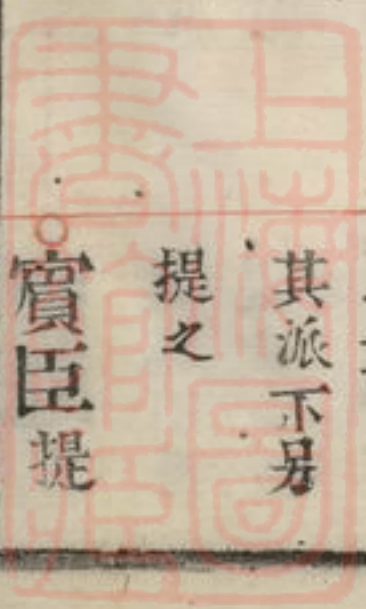 其派下另
提之
○賔臣提
上海圖
書館藏